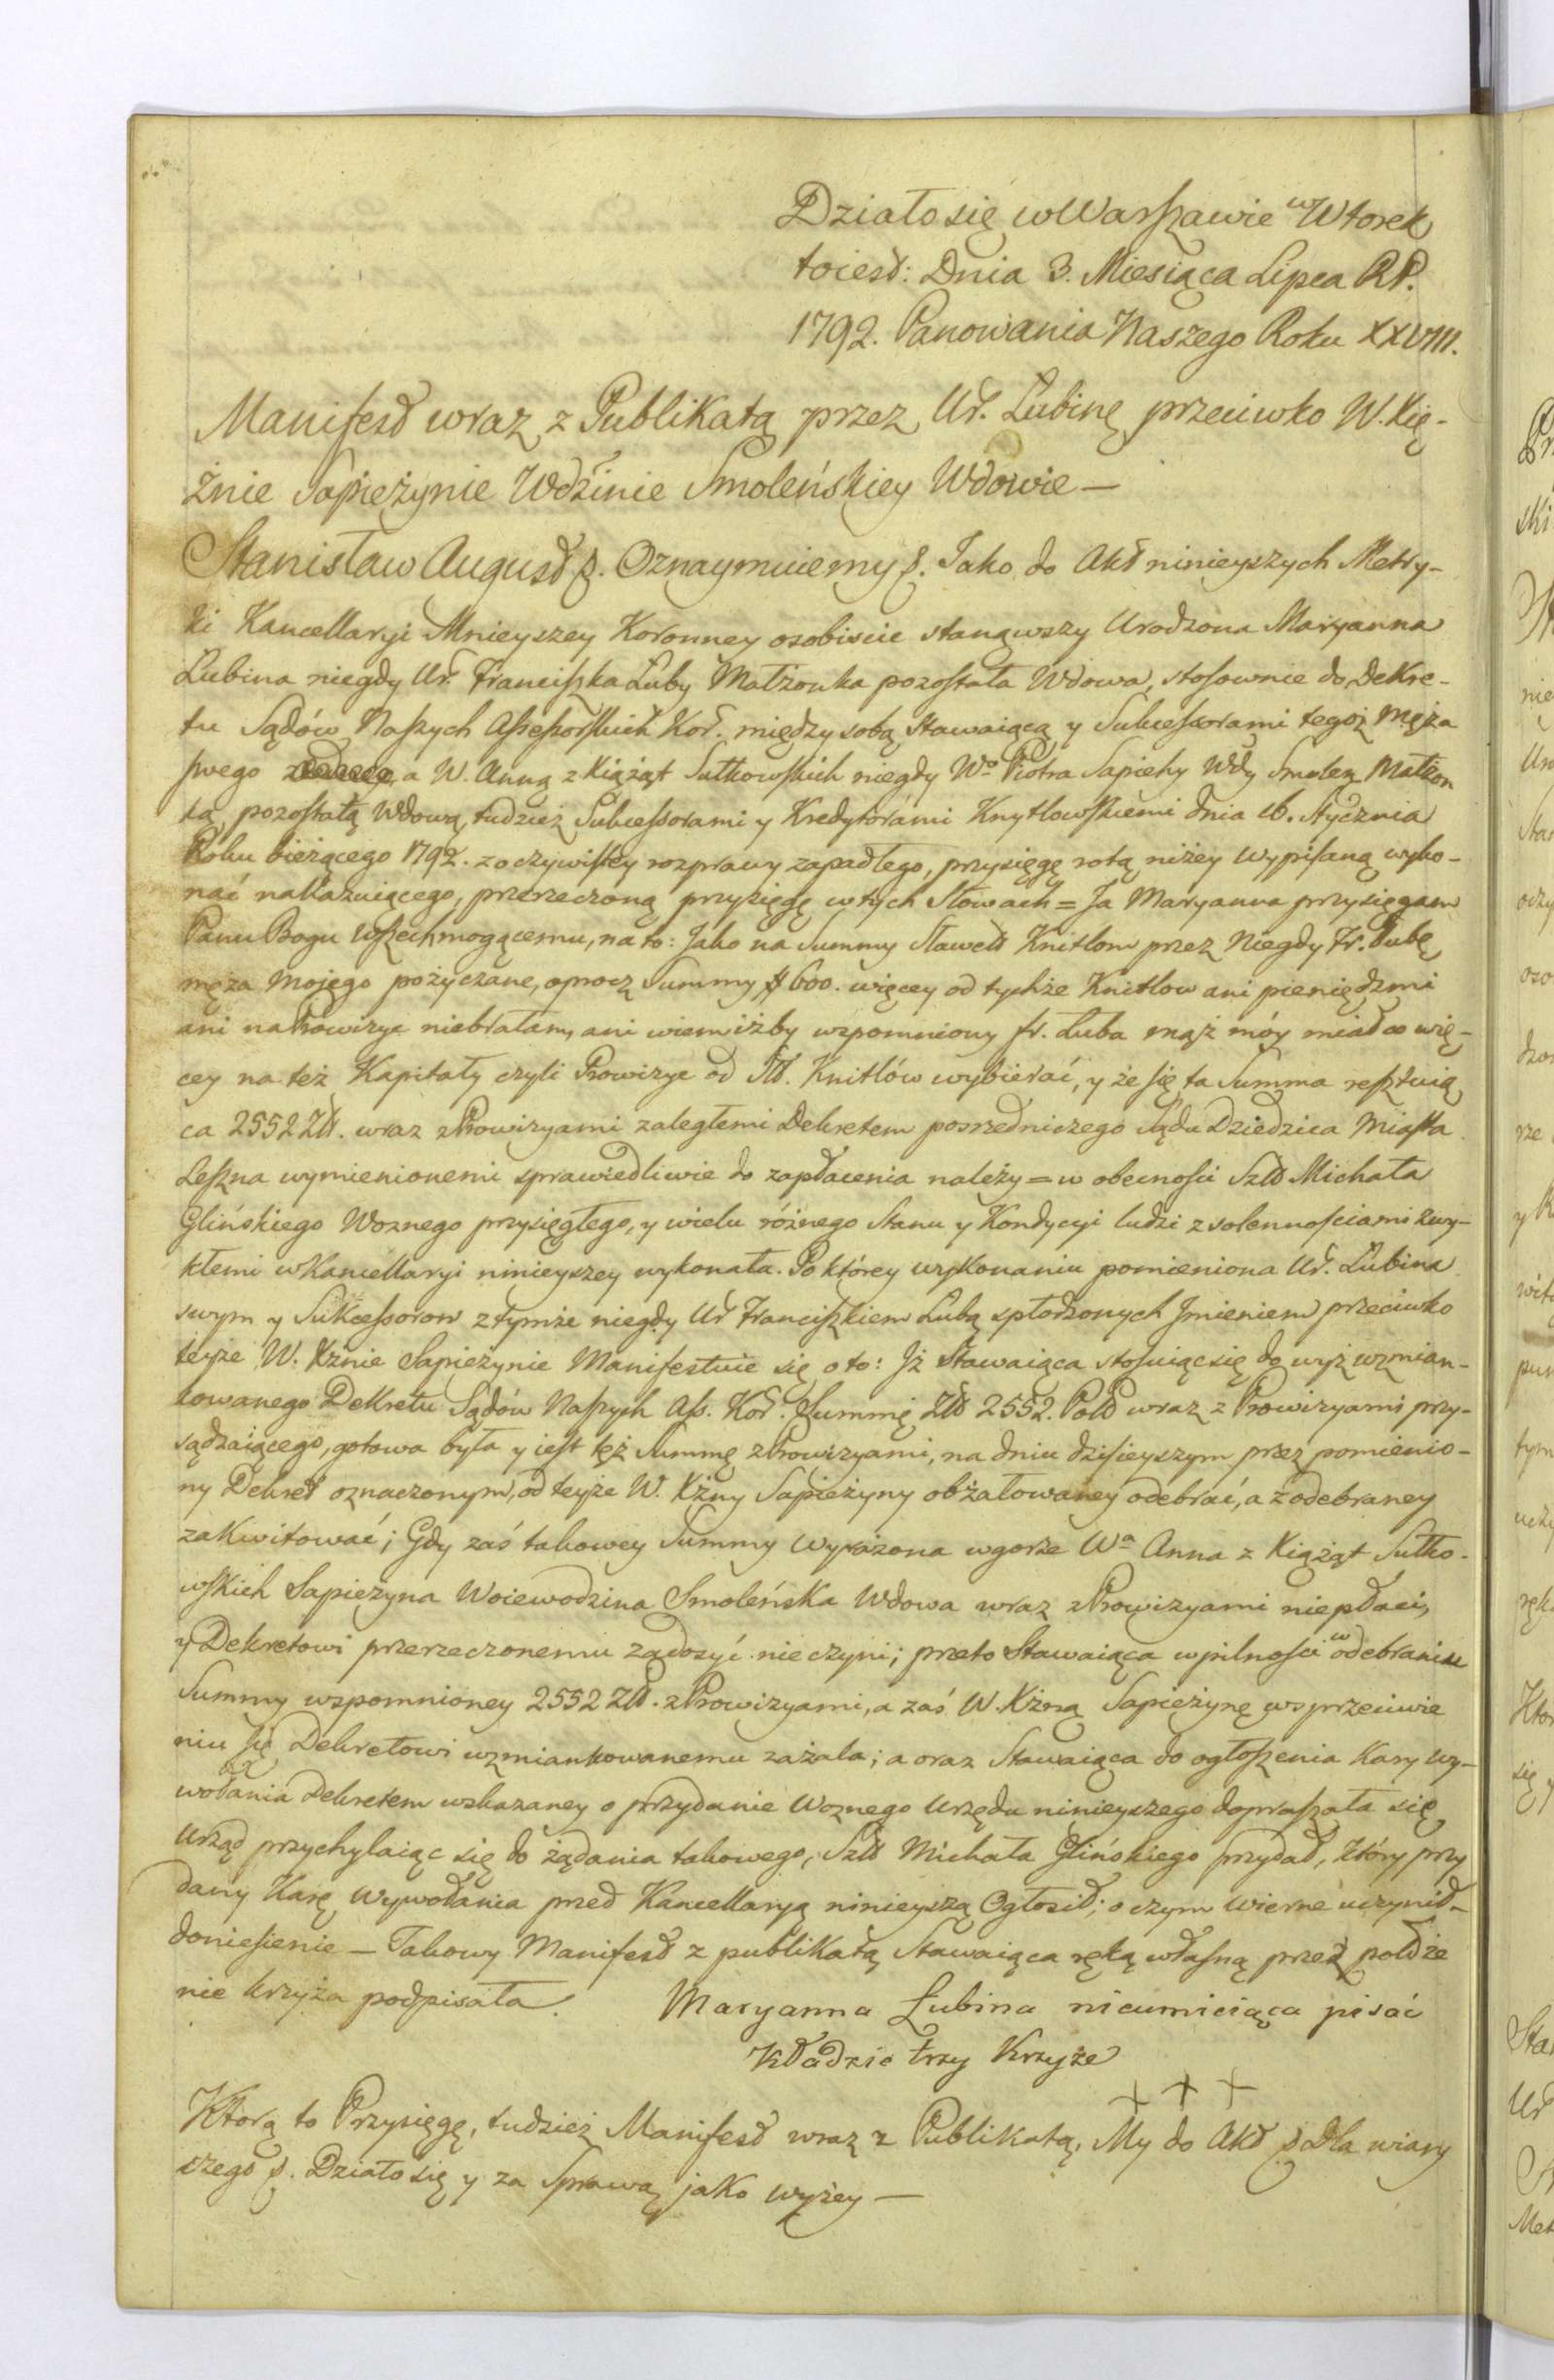 Działo się w Warszawie w Wtorek
to iest: Dnia 3. Miesiąca Lipca RP.
1792. Panowania Naszego Roku XXVIII.
Manifest wraz z Publikatą przez Ur. Lubinę przeciwko W. Xię-
żnie Sapieżynie Wdzinie Smoleńskiey Wdowie —
Stanisław August p. Oznaymuiemy p. Jako do Akt ninieyszych Metry-
ki Kancellaryi Mnieyszey Koronney osobiscie stanąwszy Urodzona Maryanna
Lubina niegdy Ur. Franciszka Luby Małżonka pozostała Wdowa, stosownie do Dekre-
tu Sądów Naszych Assessorskich Kor. między sobą Stawaiącą y Sukcessorami tegoż Męża
swego a W. Anną z Xiążąt Sułkowskich niegdy Wo Piotra Sapiehy Wdy Smoleń Małżon
ką pozostałą Wdową, tudzież Sukcessorami y Kredytorami Knytlowskiemi dnia 16. Stycznia
Roku bieżącego 1792. z oczywistey rozprawy zapadłego, przysięgę rotą niżey wypisaną wyko-
nać nakazuiącego, przerzeczoną przysięgę w tych Słowach = Ja Maryanna przysięgam
Panu Bogu Wszechmogącemu, na to: Jako na Summy Sławet Knitlom przez Niegdy Fr. Lubę
męża Mojego pożyczane, oprocz Summy # 600. więcey od tychże Knitlow ani pieniędzmi
ani na Prowizye niebrałam, ani wiem iżby wspomniony Fr. Luba mąż móy miał co wię-
cey na też Kapitały czyli Prowizye od Sł. Knitlów wybierać, y że się ta Summa resztuią
ca 2552 Zł. wraz z Prowizyami zaległemi Dekretem posredniczego Sądu Dziedzica Miasta
Leszna wymienionemi sprawiedliwie do zapłacenia należy = w obecności Szl Michała
Glińskiego Woznego przysięgłego, y wielu różnego Stanu y Kondycyi ludzi z solennościami zwy-
kłemi w Kancellaryi ninieyszey wykonała. Po którey wykonaniu pomieniona Ur. Lubina
swym y Sukcessorow z tymże niegdy Ur Franciszkiem Lubą spłodzonych Jmieniem przeciwko
teyże W. Xżnie Sapieżynie Manifestuie się o to: Jż Stawaiąca stosuiąc się do wyż wzmian-
kowanego Dekretu Sądów Naszych Ass. Kor. Summę Zł 2552. Pol wraz z Prowizyami przy-
sądzaiącego, gotowa była y iest tęż Summę z Prowizyami, na dniu dzisieyszym przez pomienio-
ny Dekret oznaczonym, od teyże W. Xżny Sapieżyny obżałowaney odebrać, a z odebraney
zakwitować; Gdy zaś takowey Summy wyrażona w gorze Wa Anna z Xiążąt Sułko-
wskich Sapieżyna Woiewodzina Smoleńska Wdowa wraz z Prowizyami niepłaci,
y Dekretowi przerzeczonemu zadosyć nie czyni; przeto Stawaiąca w pilności w odebraniu
Summy wspomnioney 2552 Zł. z Prowizyami, a zaś W. Xżną Sapieżynę w sprzeciwie
niu się Dekretowi wzmiankowanemu zażala; a oraz Stawaiąca do ogłoszenia Kary wy-
wołania Dekretem wskazaney o przydanie Woznego Urzędu ninieyszego dopraszała się
Urząd przychylaiąc się do żądania takowego, Szl Michała Glińskiego przydał, który przy
dany Karę Wywołania przed Kancellaryą ninieyszą Ogłosił; o czym wierne uczynił
doniesienie — Takowy Manifest z publikatą Stawaiąca ręką własną przez połoze
nie krzyża podpisała. Maryanna Lubina nieumieiąca pisać
kładzie trzy Krzyże
+ + +
Którą to Przysięgę, tudzież Manifest wraz z Publikatą, My do Akt p Dla wiary
czego p. Działo się y za Sprawą jako wyżey —